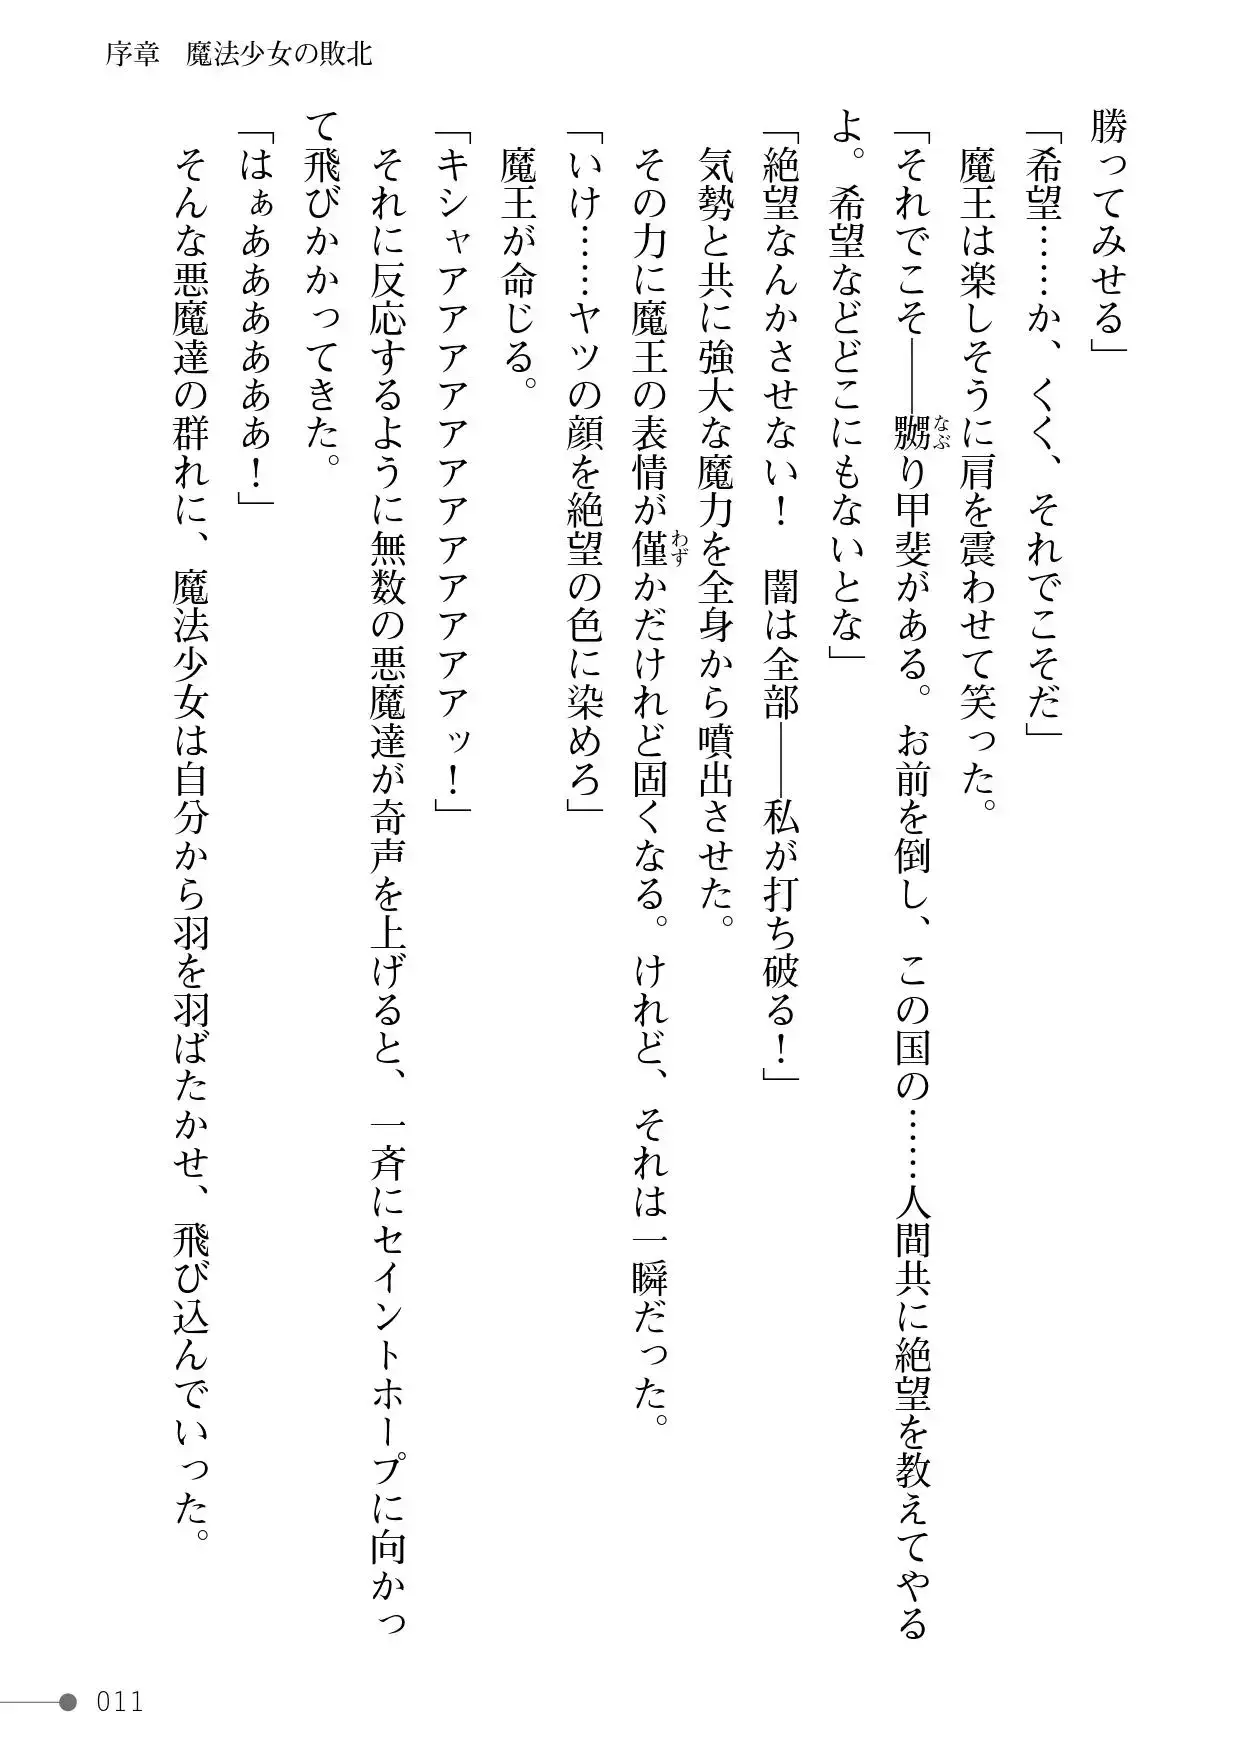 序章　魔法少女の敗北
勝ってみせる」
「希望……か、くく、それでこそだ」
魔王は楽しそうに肩を震わせて笑った。
「それでこそ――嬲り甲斐がある。お前を倒し、この国の……人間共に絶望を教えてやる
なぶ
よ。希望などどこにもないとな」
「絶望なんかさせない！　闇は全部――私が打ち破る！」
気勢と共に強大な魔力を全身から噴出させた。
その力に魔王の表情が僅かだけれど固くなる。けれど、それは一瞬だった。
わず
「いけ……ヤツの顔を絶望の色に染めろ」
魔王が命じる。
「キシャアアアアアアアアアアアアッ！」
それに反応するように無数の悪魔達が奇声を上げると、一斉にセイントホープに向かっ
て飛びかかってきた。
「はぁああああああ！」
そんな悪魔達の群れに、魔法少女は自分から羽を羽ばたかせ、飛び込んでいった。
011